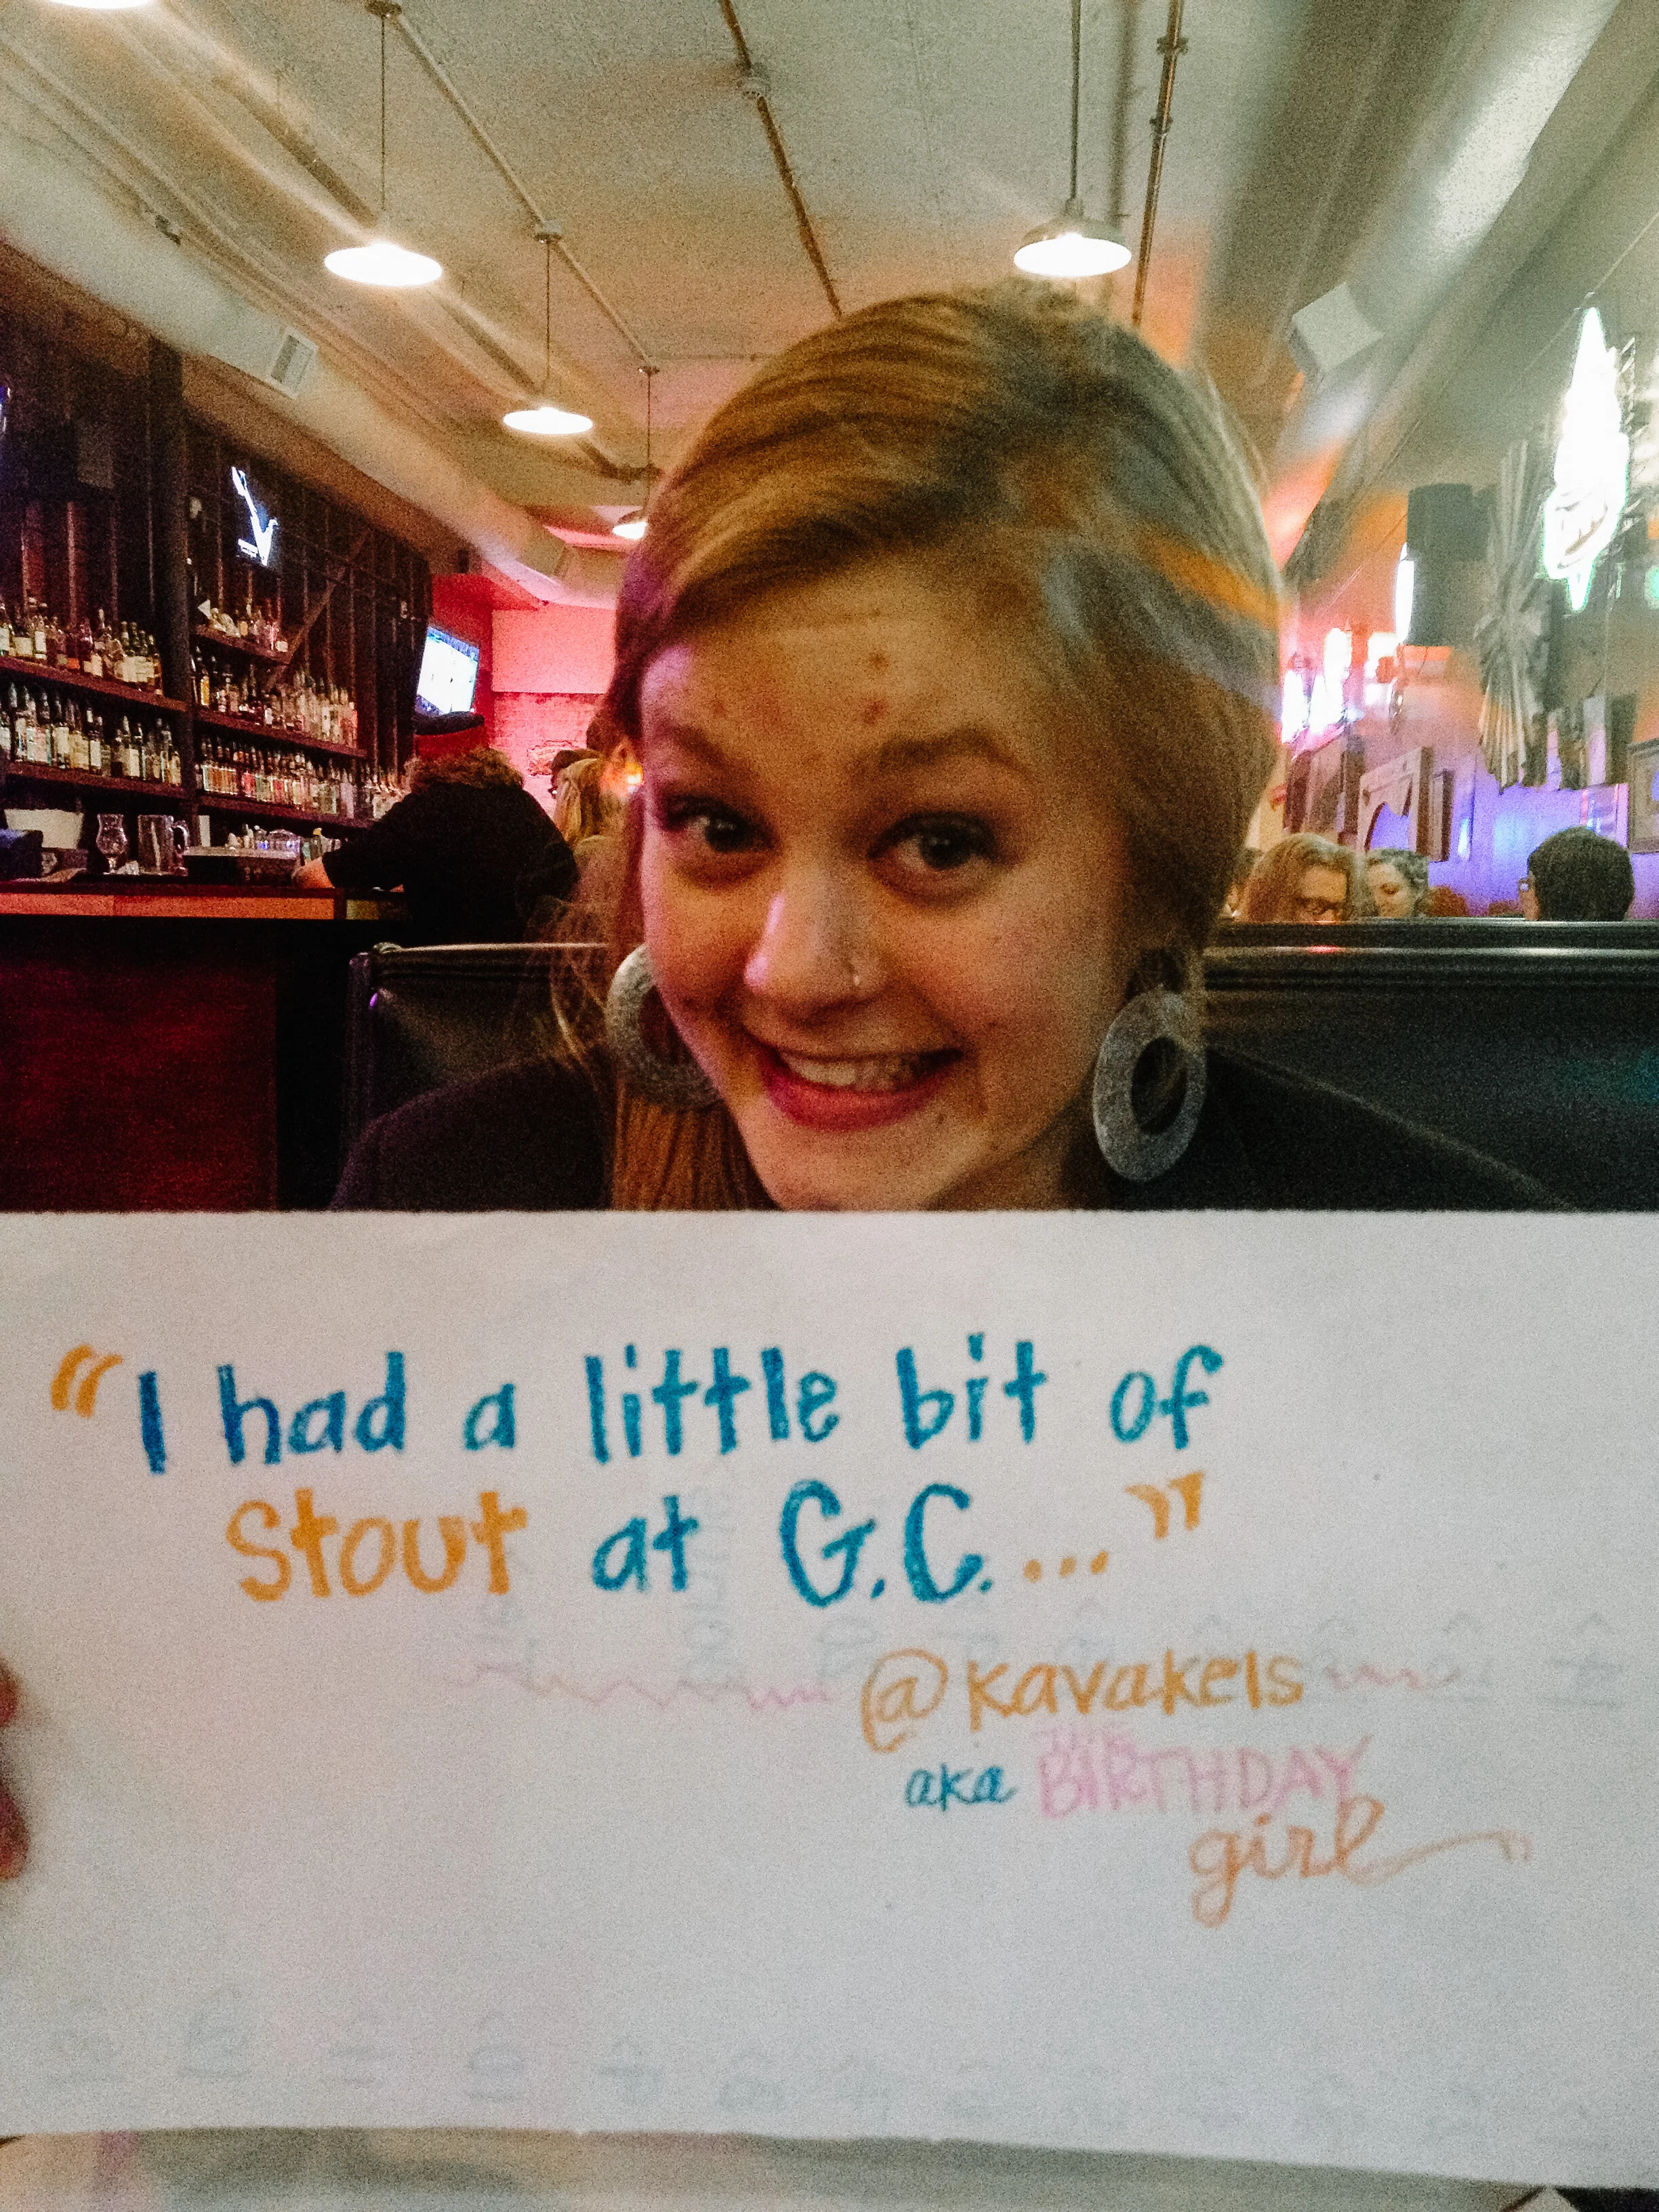 “I had a little bit of
Stout at G.C. ...”
@kavakels
aka THE BIRTHDAY
girl